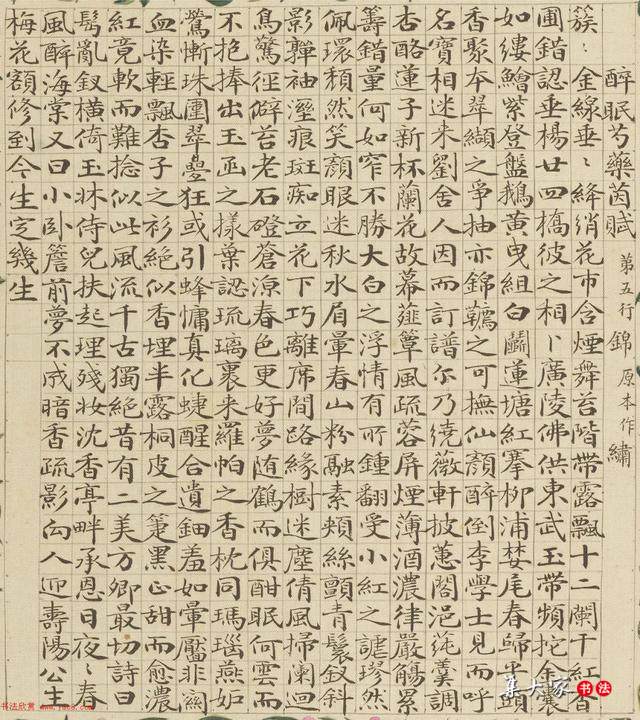 醉眠芍藥茵賦 第五行錦原本作繡
簇〻金線垂〻絳綃花市含煙舞苔階帶露飄十二闌干紅杏
圃錯認垂楊廿四橋彼之相卜廣陵佛供東武玉帶頻拕金囊
如縷鱠紫登盤鵝黃曳組白鬭蓮塘紅搴柳浦婪尾春歸半頭
香聚夲翠纈之爭抽亦錦韉之可撫仙顏醉倒李學士見而呼
名寶相迷来劉舍人因而訂譜尒乃繞薇軒披蕙閣浥蒓羹調
杏酪蓮子新杯蘭花故幕薤簟風疏蓉屏煙薄酒濃律嚴觴累
籌錯量何如窄不勝大白之浮情有所鍾翻受小紅之謔璆然
佩環頹然笑顏眼迷秋水眉暈春山粉融素頰絲顫青鬟釵斜
影嚲袖溼痕斑痴立花下巧離席間路緣樹迷塵倩風掃闌迴
鳥驚徑僻苔老石磴蒼涼春色更好夢随鶴而俱酣眠何雲而
不抱捧出玉函之樣葉認琉璃裹来羅帕之香枕同瑪瑙燕妬
鶯慚珠圍翠疊狂或引蜂慵真化蜨醒合遺鈿羞如暈靨非關
血染輕飄杏子之衫絕似香埋半露桐皮之箑黑正甜而愈濃
紅竟軟而難捻似此風流千古獨絕昔有二美方卿最切詩曰
鬅亂釵橫倚玉牀侍兒扶起理殘妝沈香亭畔承恩日夜〻春
風醉海棠又曰小卧簷前夢不成暗香疏影向人迎壽陽公主
梅花額修到今生定幾生
集大家书法
书法欣赏